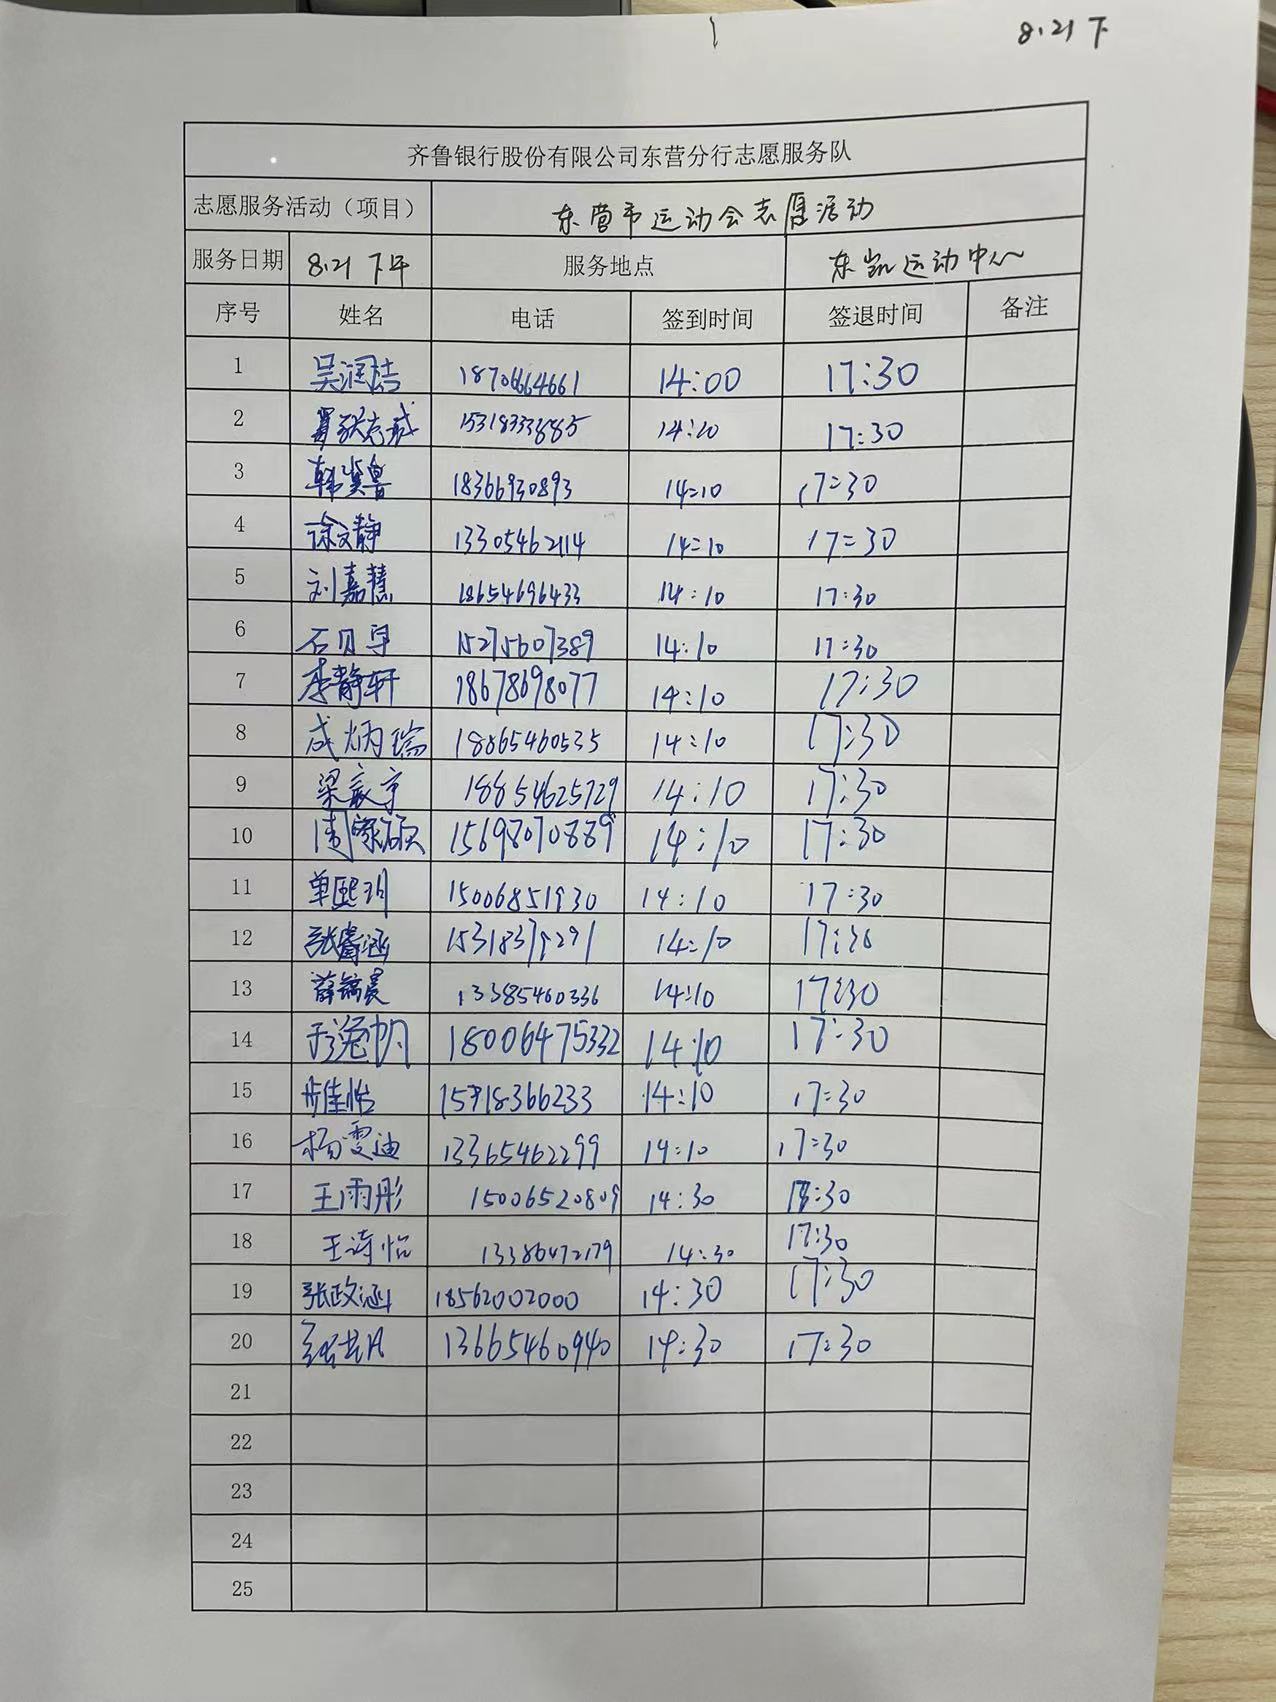 8.21 下
齐鲁银行股份有限公司东营分行志愿服务队
志愿服务活动（项目） 东营市运动会志愿活动
服务日期 8.21 下午 服务地点 东凯运动中心
序号 姓名 电话 签到时间 签退时间 备注
1 吴润喆 14:00 17:30
2 15318333885 14:10 17:30
3 韩冀鲁 18366930893 14:10 17:30
4 徐文静 13305462114 14:10 17:30
5 刘嘉慧 18654696433 14:10 17:30
6 石贝宇 15275607389 14:10 17:30
7 李静轩 18678698077 14:10 17:30
8 成炳瑞 18865460535 14:10 17:30
9 18854625729 14:10 17:30
10 周家硕 15698070889 14:10 17:30
11 单熙玥 15006851930 14:10 17:30
12 张睿涵 14:10 17:30
13 薛镐晨 13385460336 14:10 17:30
14 于逸帆 18006475332 14:10 17:30
15 佳怡 14:10 17:30
16 杨雯迪 13365462299 14:10 17:30
17 王雨彤 15006520809 14:30 17:30
18 王诗怡 13386472179 14:30 17:30
19 张政涵 18562002000 14:30 17:30
20 13665460940 14:30 17:30
21
22
23
24
25